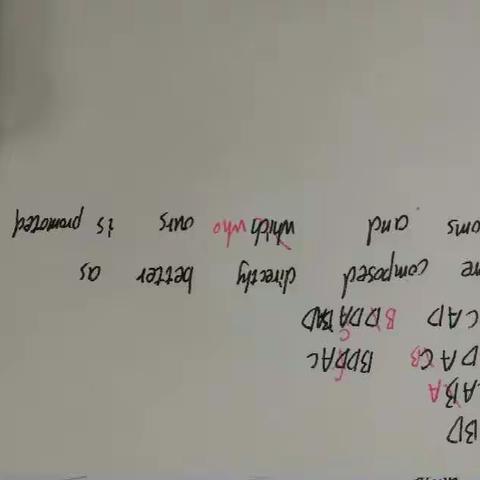 BD
AB A
DAC B BDDAC C
CAD B
composed directly better as
and which who ours is promoted